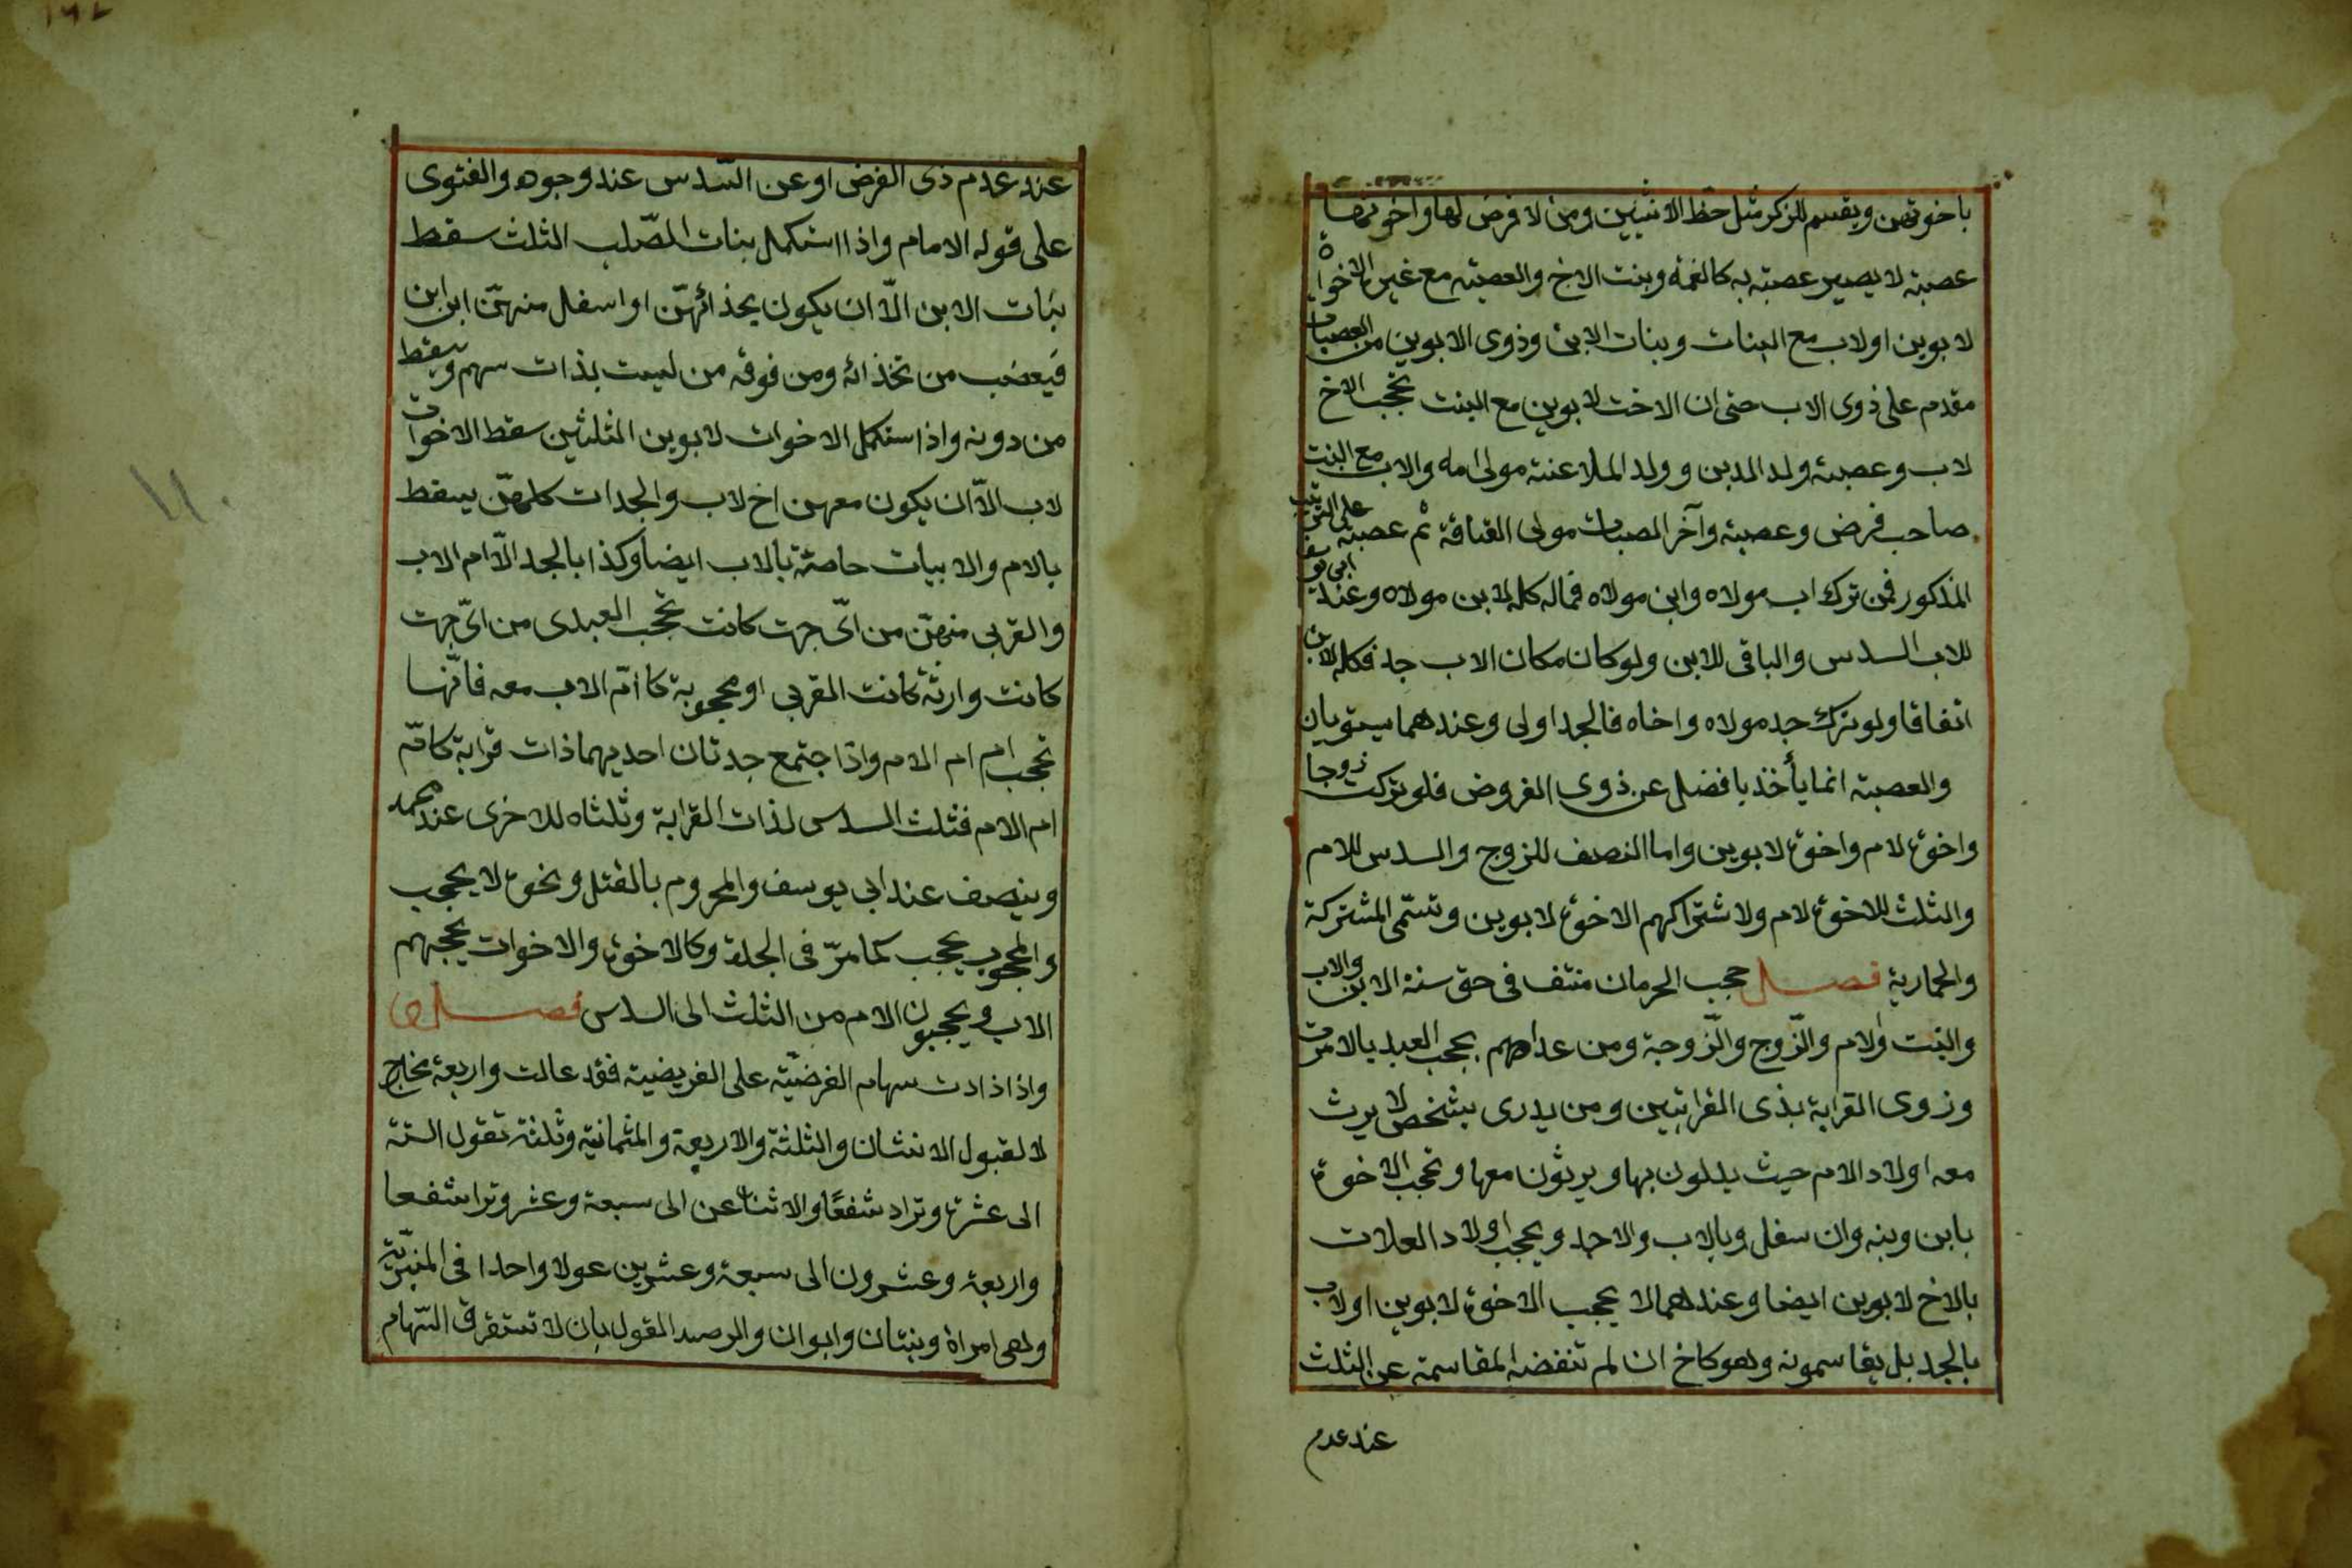 باخوتهن ويقسم للزكر مثل حظ الانثيين ومن لا فرض لها واخوتها
عصبة لا يصير عصبة به كالغمة وبنت الاخ والعصبة مع غيره الاخوات
لابوين او لاب مع البنات وبنات الابن وذوى الابوين من العصبات
مقدم على ذوى الاب حتى ان الاخت لابوين مع البنت تحجب الاخ
لاب وعصبة ولد المدبن وولد الملاعنة مولى امه والاب مع البنت
صاحب فرض وعصبة وآخر المصبات مولى القتاقة ثم عصبته على الترتيب
المذكور فمن ترك اب مولاه وابن مولاه فماله كله لابن مولاه وعند ابى يوسف
للاب السدس والباقى للابن ولو كان مكان الاب جد فكله للابن
اتفاقا ولو ترك جد مولاه واخاه فالجد اولى وعندهما يستويان
والعصبة انما يأخذ بافضل عن ذوى الفروض فلو تركت زوجا
واخوة لام واخوة لابوين واما النصف للزوج والسدس للام
والثلث للاخوة لام ولا شتراكهم الاخوة لابوين وتسمى المشتركة
والحمارية فصل حجب الحرمان منتف فى حق ستة الابن والاب
والبنت والام والزوج والزوجة ومن عداهم يحجب العبد بالامرت
وزوى القرابة بذى القرابتين ومن يدرى بشخص لا يرث
معه اولاد الام حيث يدلون بها ويريثون معها وتحجب الاخوة
بابن وبنه وان سفل وبالاب والاحد ويحجب اولاد العلات
بالاخ لابوين ايضا وعندهما لا يحجب الاخوة لابوين او لاب
بالجد بل يقاسمونه وهو كاخ ان لم تنفضه المقاسمة عن الثلث
عند عدم
عند عدم ذى الفرض او عن السدس عند وجوه والفتوى
على قوله الامام واذا استكمل بنات الصلب الثلث سقط
بنات الابن الا ان يكون بحذائهن او اسفل منهن ابن ابن
فيعصب من تحذائه ومن فوقه من ليست بذات سهم ويسقط
من دونه واذا ستكمل الاخوات لابوين الثلثين سقط الاخوات
لاب الا ان يكون معهن اخ لاب والجدات كلهن يسقط
بالام والابيات حاصة بالاب ايضا وكذا بالجد الا ام الاب
والقربى منهن من اى جهت كانت تحجب العبدى من اى جهت
كانت وارثة كانت القربى او محجوبة كاام الاب معه فانها
تحجب ام ام الام واذا جتمع جدتان احديهما ذات قرابة كام
ام الام فثلث السدس لذات القرابة وثلثاه للاخرى عند محمد
وينصف عند ابى يوسف والمحروم بالقتل ونحوه لا يحجب
والمحجوب يحجب كما مر فى الجدة وكالاخوة والاخوات يحجبهم
الاب ويحجبون الام من الثلث الى السدس فصل
واذا ذادت سهام الفرضية على الفريضية فقد عالت واربعة مخارج
لا لقبول الانثان والثلثة والاربعة والثمانية وثلثة تقول الستة
الى عشرة وتراد شفعا والاثنا عن الى سبعة وعشر وترا شفعا
واربعة وعشرون الى سبعة وعشرين عولا واحدا فى المنبرية
وهى امراة وبنتان وابوان والرصد القول بان لا تستقرق السهام